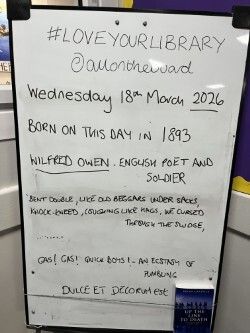 #LOVEYOURLIBRARY
@allontheboard
Wednesday 18th March 2026
BORN ON THIS DAY IN 1893
WILFRED OWEN - ENGLISH POET AND
SOLDIER
BENT DOUBLE, LIKE OLD BEGGARS UNDER SACKS,
KNOCK-KNEED, COUGHING LIKE HAGS, WE CURSED
THROUGH THE SLUDGE,
..........
GAS! GAS! QUICK BOYS! - AN ECSTASY OF
FUMBLING
DULCE ET DECORUM EST
UP THE
LINE
TO DEATH